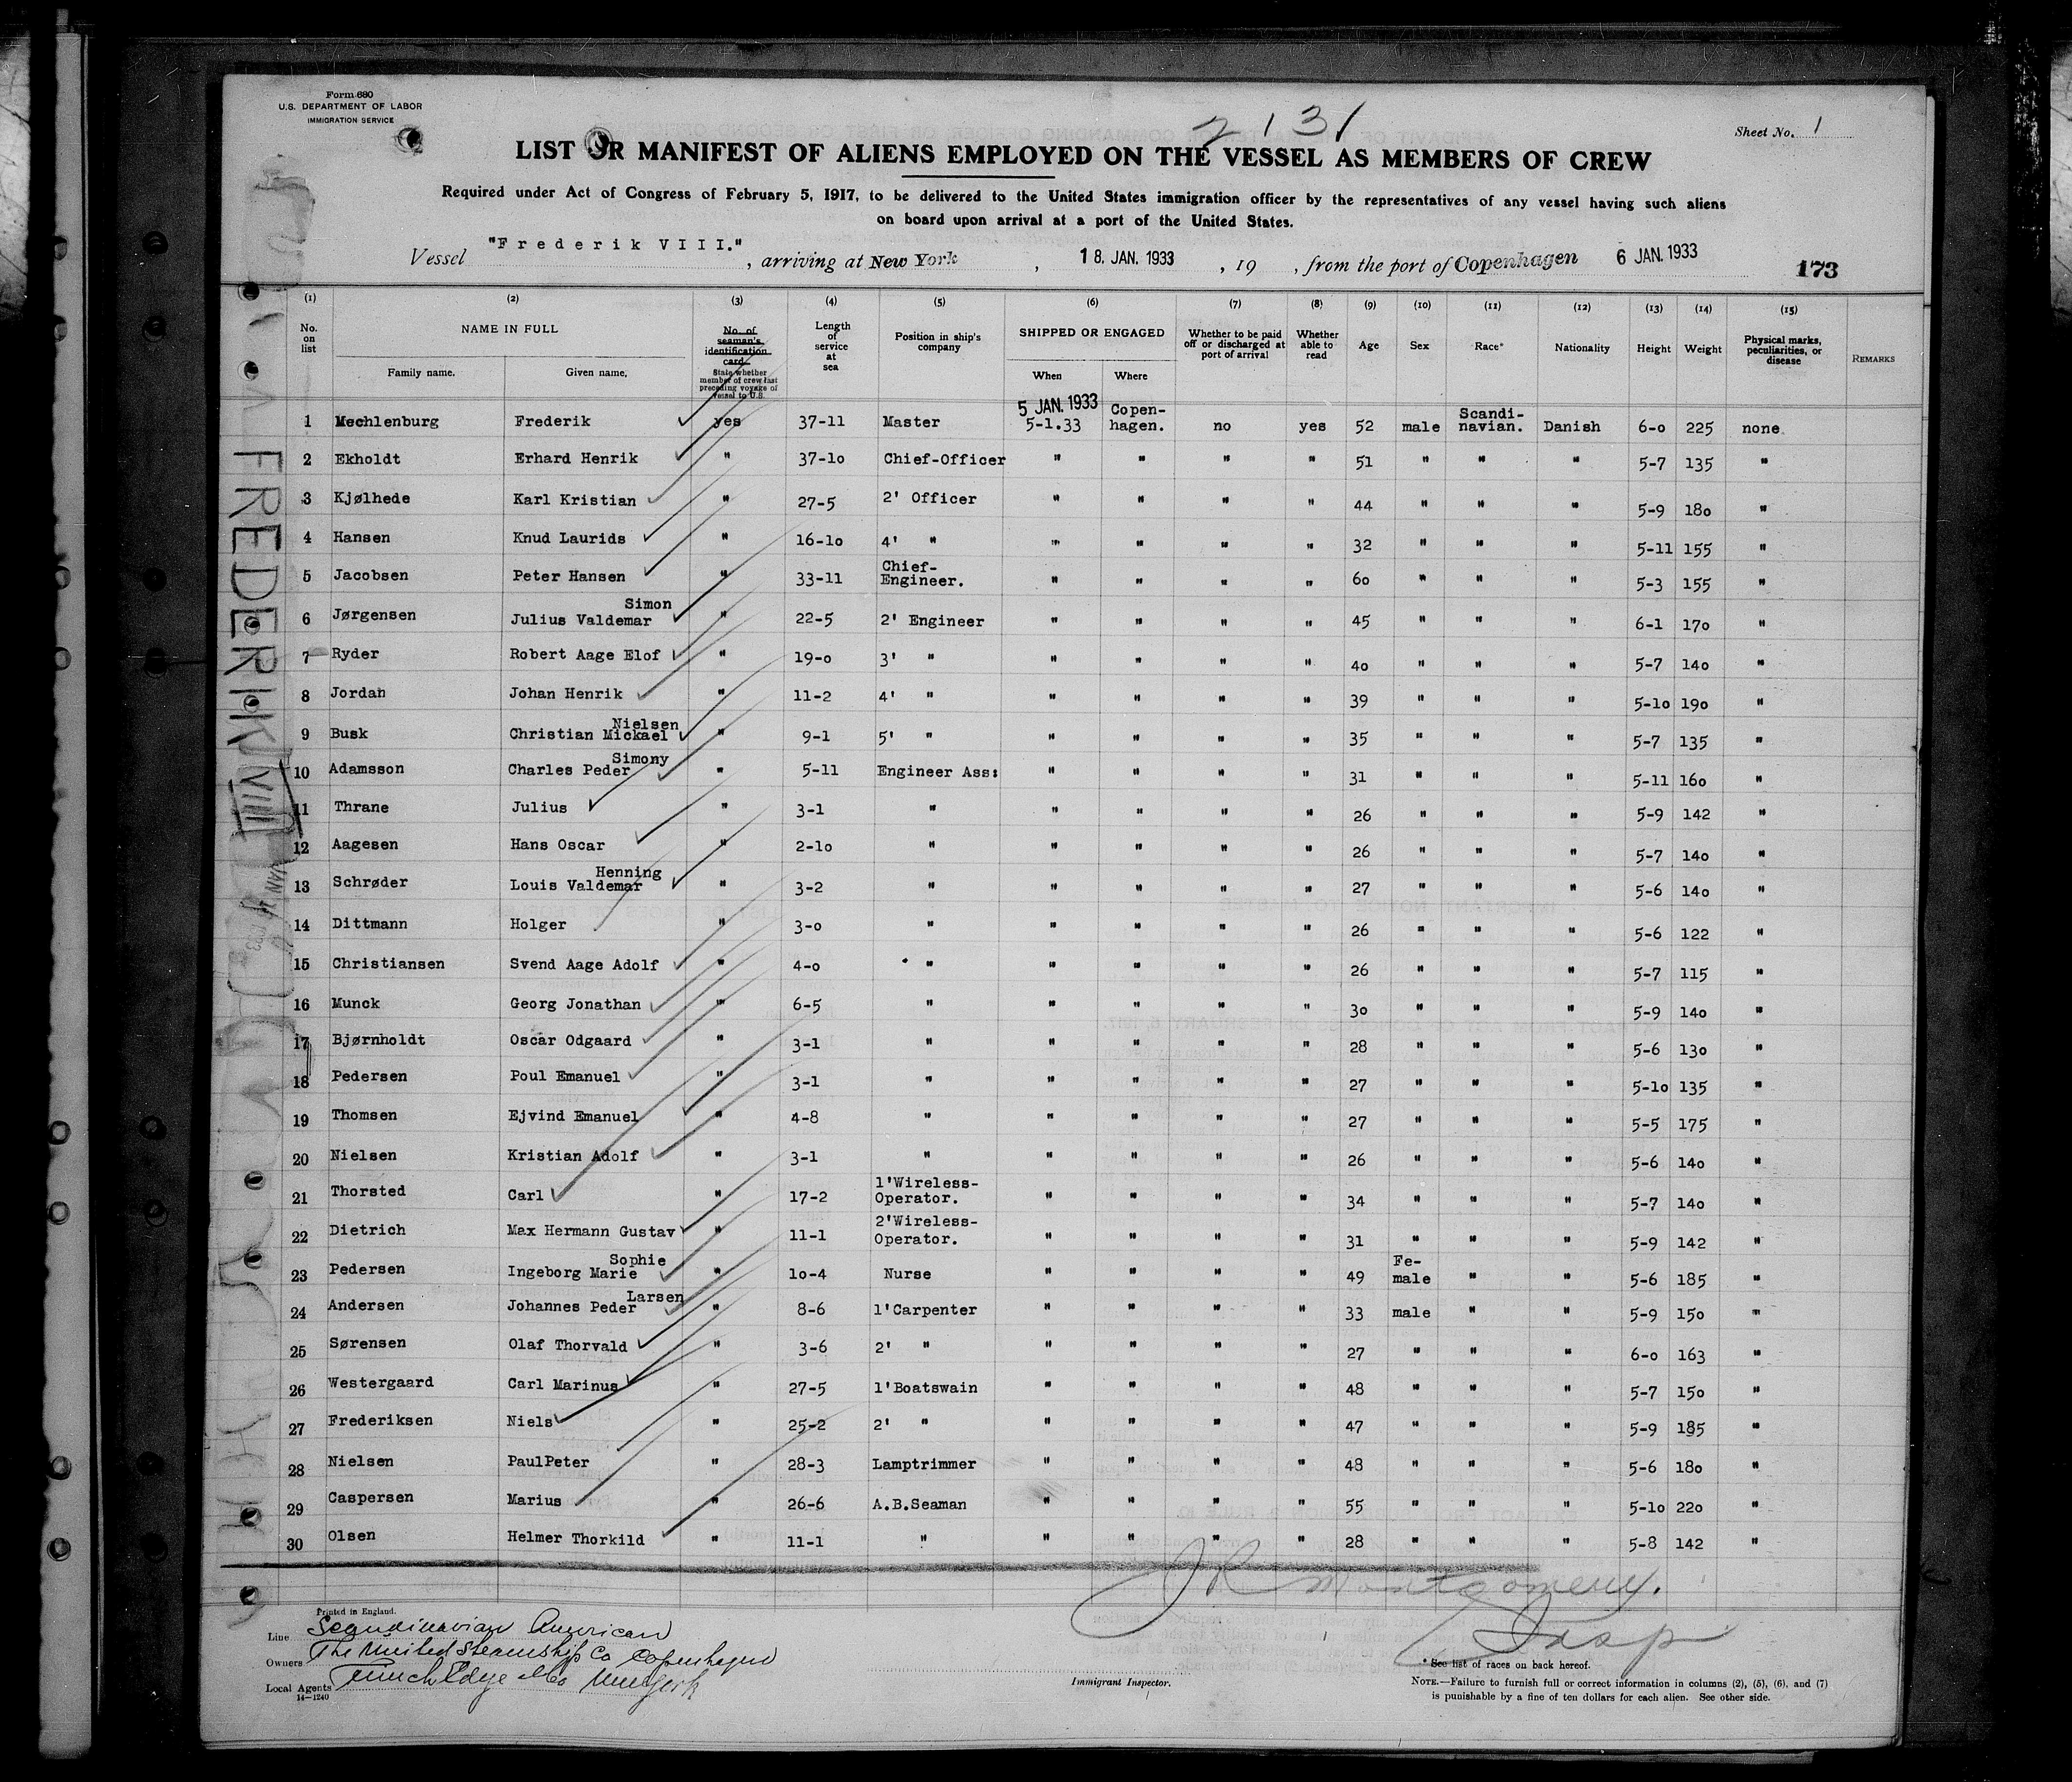 Form 680
U.S. DEPARTMENT OF LABOR
IMMIGRATION SERVICE
2131
Sheet No. 1
LIST OR MANIFEST OF ALIENS EMPLOYED ON THE VESSEL AS MEMBERS OF CREW
Required under Act of Congress of February 5, 1917, to be delivered to the United States immigration officer by the representatives of any vessel having such aliens
on board upon arrival at a port of the United States.
Vessel "Frederik VIII.", arriving at New York, 18. JAN. 1933, 19 , from the port of Copenhagen 6 JAN. 1933
173
(1) (2) (3) (4) (5) (6) (7) (8) (9) (10) (11) (12) (13) (14) (15)
No. on list NAME IN FULL Family name. Given name. No. of seaman's identification card State whether member of crew last preceding voyage of vessel to U.S. Length of service at sea Position in ship's company SHIPPED OR ENGAGED When Where Whether to be paid off or discharged at port of arrival Whether able to read Age Sex Race* Nationality Height Weight Physical marks, peculiarities, or disease REMARKS
5 JAN. 1933
1 Mechlenburg Frederik yes 37-11 Master 5-1.33 Copen-hagen. no yes 52 male Scandi-navian. Danish 6-0 225 none
2 Ekholdt Erhard Henrik " 37-10 Chief-Officer " " " " 51 " " " 5-7 135 "
3 Kjølhede Karl Kristian " 27-5 2' Officer " " " " 44 " " " 5-9 180 "
4 Hansen Knud Laurids " 16-10 4' " " " " " 32 " " " 5-11 155 "
5 Jacobsen Peter Hansen " 33-11 Chief-Engineer. " " " " 60 " " " 5-3 155 "
6 Jørgensen Julius Valdemar Simon " 22-5 2' Engineer " " " " 45 " " " 6-1 170 "
7 Ryder Robert Aage Elof " 19-0 3' " " " " " 40 " " " 5-7 140 "
8 Jordan Johan Henrik " 11-2 4' " " " " " 39 " " " 5-10 190 "
9 Busk Christian Mickael Nielsen " 9-1 5' " " " " " 35 " " " 5-7 135 "
10 Adamsson Charles Peder Simony " 5-11 Engineer Ass: " " " " 31 " " " 5-11 160 "
11 Thrane Julius " 3-1 " " " " " 26 " " " 5-9 142 "
12 Aagesen Hans Oscar " 2-10 " " " " " 26 " " " 5-7 140 "
13 Schrøder Louis Valdemar Henning " 3-2 " " " " " 27 " " " 5-6 140 "
14 Dittmann Holger " 3-0 " " " " " 26 " " " 5-6 122 "
15 Christiansen Svend Aage Adolf " 4-0 " " " " " 26 " " " 5-7 115 "
16 Munck Georg Jonathan " 6-5 " " " " " 30 " " " 5-9 140 "
17 Bjørnholdt Oscar Odgaard " 3-1 " " " " " 28 " " " 5-6 130 "
18 Pedersen Poul Emanuel " 3-1 " " " " " 27 " " " 5-10 135 "
19 Thomsen Ejvind Emanuel " 4-8 " " " " " 27 " " " 5-5 175 "
20 Nielsen Kristian Adolf " 3-1 " " " " " 26 " " " 5-6 140 "
21 Thorsted Carl " 17-2 1'Wireless-Operator. " " " " 34 " " " 5-7 140 "
22 Dietrich Max Hermann Gustav " 11-1 2'Wireless-Operator. " " " " 31 " " " 5-9 142 "
23 Pedersen Ingeborg Marie Sophie " 10-4 Nurse " " " " 49 Fe-male " " 5-6 185 "
24 Andersen Johannes Peder Larsen " 8-6 1'Carpenter " " " " 33 male " " 5-9 150 "
25 Sørensen Olaf Thorvald " 3-6 2' " " " " " 27 " " " 6-0 163 "
26 Westergaard Carl Marinus " 27-5 1'Boatswain " " " " 48 " " " 5-7 150 "
27 Frederiksen Niels " 25-2 2' " " " " " 47 " " " 5-9 185 "
28 Nielsen PaulPeter " 28-3 Lamptrimmer " " " " 48 " " " 5-6 180 "
29 Caspersen Marius " 26-6 A.B.Seaman " " " " 55 " " " 5-10 220 "
30 Olsen Helmer Thorkild " 11-1 " " " " " 28 " " " 5-8 142 "
FREDERIK VIII
J R Montgomery.
Insp
Printed in England.
Line Scandinavian American
Owners The United Steamship Co Copenhagen
Local Agents Funch Edye & Co New York
14—1240
Immigrant Inspector.
* See list of races on back hereof.
NOTE.—Failure to furnish full or correct information in columns (2), (5), (6), and (7)
is punishable by a fine of ten dollars for each alien. See other side.